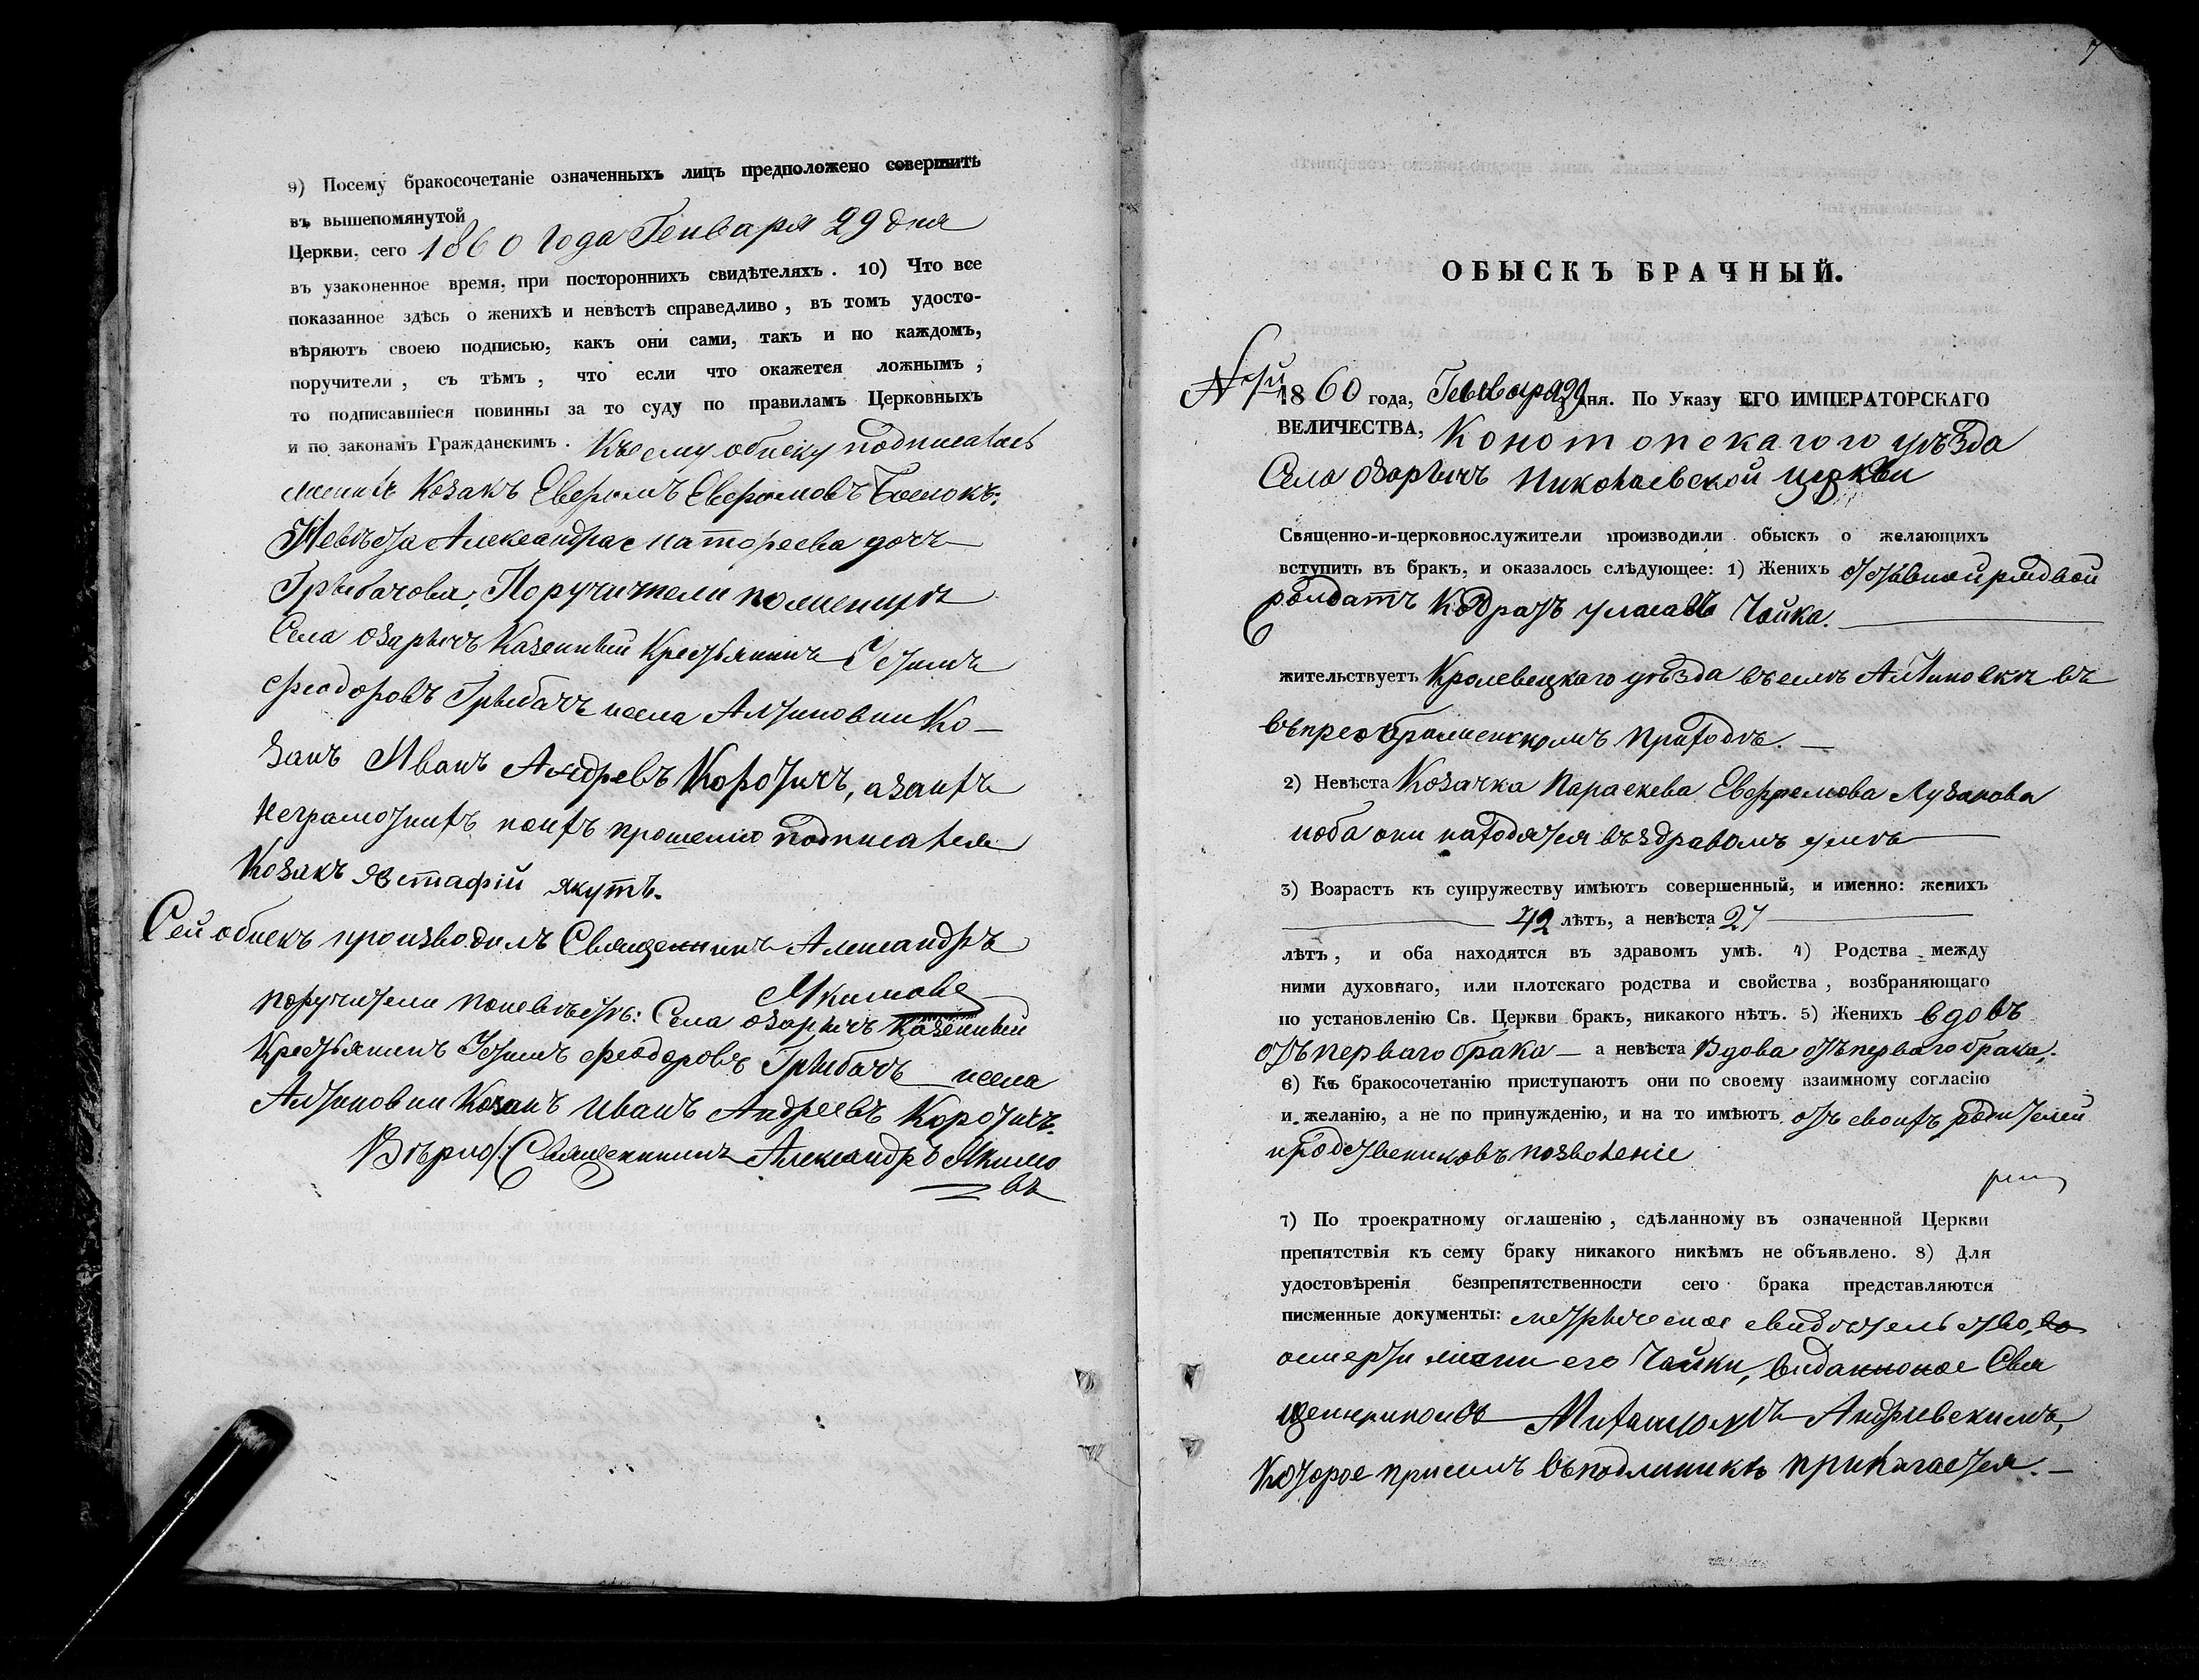 9) Посему бракосочетаніе означенныхъ лицъ предположено совершить
въ вышепомянутой
Церкви, сего 1860 Года Генваря 29 дня
въ узаконенное время, при постороннихъ свидѣтеляхъ. 10) Что все
показанное здѣсь о женихѣ и невѣстѣ справедливо, въ томъ удосто-
вѣряютъ своею подписью, какъ они сами, такъ и по каждомъ,
поручители, съ тѣмъ, что если что окажется ложнымъ,
то подписавшіеся повинны за то суду по правиламъ Церковныхъ
и по законамъ Гражданскимъ. Къ сему обиску подписалась
женихъ Козакъ Евфремъ Евфремовъ
Невѣста Александра дочь
Грибачова, Поручители по женихѣ
Села Озаричъ Казенный Крестьянинъ Устимъ
Феодоровъ Грибачъ исела Алтиновки Ко-
закъ Иванъ Андревъ Коротичъ, азанихъ
Неграмотнихъ поихъ прошенію подписался
Козакъ Явстафій Якутъ.
Сей обискъ производилъ Священникъ Александръ
Якимовъ
поручители поневѣстѣ: Села Озаричъ Казенный
Крестьянинъ Устимъ Феодоровъ Грибачъ исела
Алтиновки Козакъ Иванъ Андреевъ Коротичъ.
Вѣрно: Священникъ Александръ Якимо
въ
7
ОБЫСКЪ БРАЧНЫЙ.
1860 года, Генваря 29 дня. По Указу ЕГО ИМПЕРАТОРСКАГО
ВЕЛИЧЕСТВА, Конотопскагого уѣзда
Села Озаричъ Николаевской церкви
Священно-и-церковнослужители производили обыскъ о желающихъ
вступить въ бракъ, и оказалось слѣдующее: 1) Женихъ рядвой
солдатъ Кодратъ Чайка.
жительствуетъ Кролевецкаго уѣзда въселѣ Алтиновкѣ въ
въпреображенскомъ приходѣ.
2) Невѣста Козачка Параскева Евфремова Лузанова
иоба они находятся въздравомъ умѣ
3) Возрастъ къ супружеству имѣютъ совершенный, и именно: женихъ
42 лѣтъ, а невѣста 27
лѣтъ, и оба находятся въ здравомъ умѣ. 4) Родства между
ними духовнаго, или плотскаго родства и свойства, возбраняющаго
по установленію Св. Церкви бракъ, никакого нѣтъ. 5) Женихъ вдовъ
отъ перваго брака — а невѣста Вдова отъ перваго брака.
6) Къ бракосочетанію приступаютъ они по своему взаимному согласію
и желанію, а не по принужденію, и на то имѣютъ отъ своихъ родителей
иродствениковъ позволеніе
7) По троекратному оглашенію, сдѣланному въ означенной Церкви
препятствія къ сему браку никакого никѣмъ не объявлено. 8) Для
удостовѣренія безпрепятственности сего брака представляются
писменные документы: метрическое свидѣтельство,
осмерти жени его Чайки, виданноное Свя
щенникомъ Андріевскимъ,
Которое присемъ въподлиникѣ прилагается.